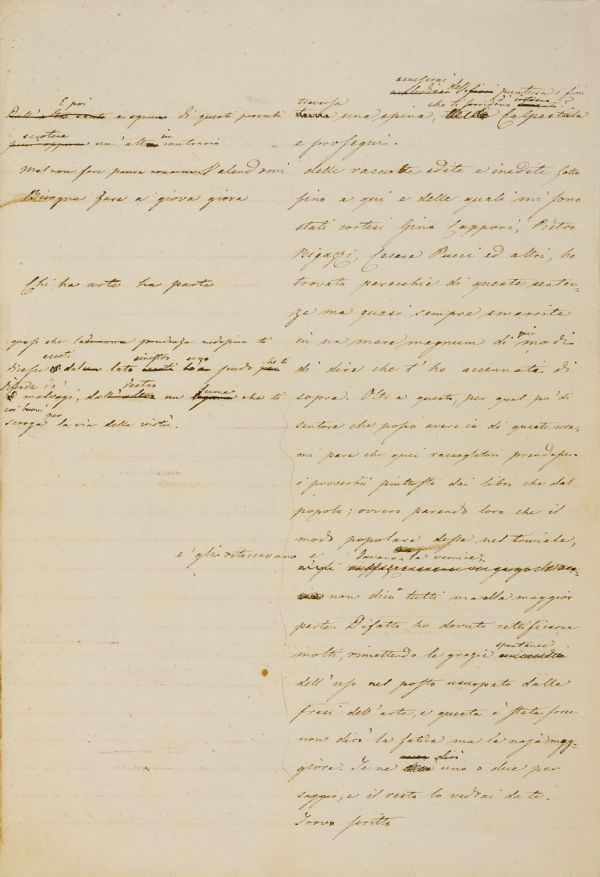 E poi
di questi proverbi
un'altro in contrario
Mal non fare paura non avere. Valendomi
Bisogna fare a giova giova
Chi ha arte ha parte
quasi che prudenza ti
ecco ti sinistro
lato scudo che ti
difende da'
malvagi, dall' destro un lume che ti
così buoni per
scorga la via della virtù.
e gli ritoccavano
puntura e fini
traversa
una spina, Calpestala
e prosegui.
delle raccolte edite e inedite fatte
fino a qui e delle quali mi sono
stati cortesi Gino Capponi, Pietro
Bigazzi, Cesare Pucci ed altri, ho
trovato parecchie di queste senten-
ze ma quasi sempre smarrite
in un mare magnum di modi
di dire che t'ho accennata di
sopra. Oltre a questo, per quel po' di
sentore che posso avere io di queste cose,
mi pare che quei raccoglitori prendessero
i proverbii piuttosto dai libri che dal
popolo; ovvero parendo loro che il
modo popolare desse nel triviale,
davano la vernice
non dirò tutti ma alla maggior
parte. Difatto ho dovuto rettificarne
molti, rimettendo le grazie spontanee
dell'uso nel posto usurpato dalla
frase dell'arte, e questa è stata forse
non dirò la fatica ma la noja mag-
giore. Te ne dirò uno o due per
saggio, e il resto lo vedrai da te.
Trovo scritto